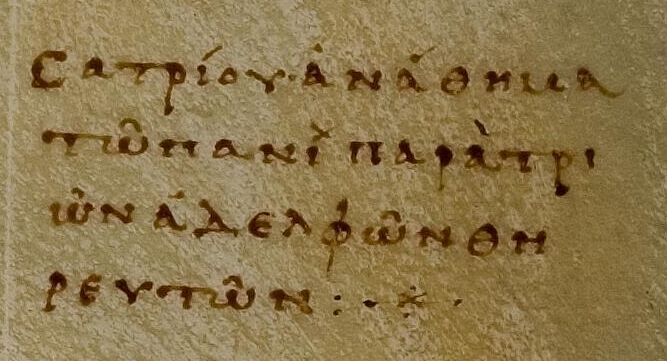 Σατρίου· ἀνάθημα
τῶ πανὶ παρὰ τρι
ῶν ἀδελφῶν θη
ρευτῶν :·※·